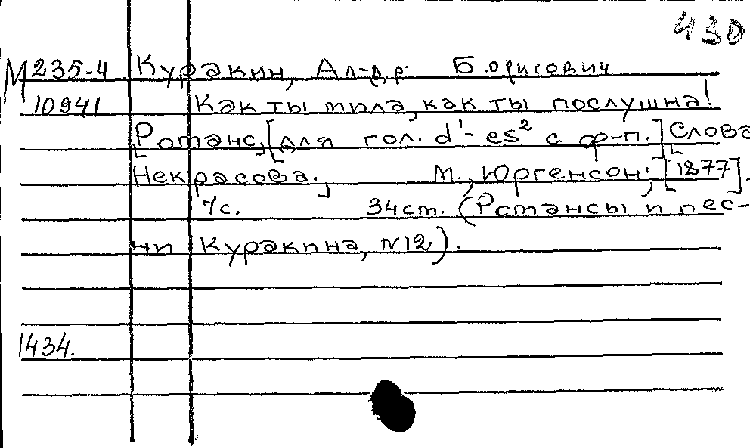 430
М 235-4 Куракин, Ал-др Борисович
10941 Как ты мила, как ты послушна!
Романс, [для гол. d¹- es² с ф-п.] Слова
Некрасова. М., Юргенсон, [1877].
7с. 34см. (Романсы и пес-
ни Куракина, №12).
1434.